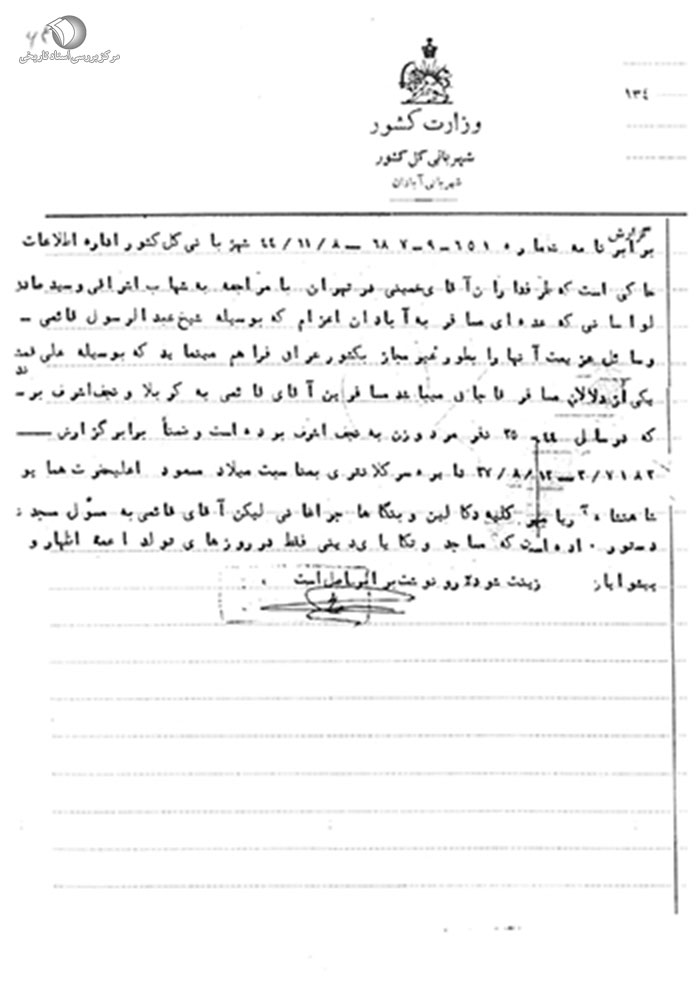 مرکز بررسی اسناد تاریخی
۱۳٤
وزارت کشور
شهربانی کل کشور
شهربانی آبادان
گزارش
برابر نامه شماره ۶۵۱۰-۹-۷ ۶۸ — ۴۴/۱۱/۸ شهربانی کل کشور اداره اطلاعات
حاکی است که طرفداران آقای خمینی در تهران با مراجعه به شهاب اشراقی و سید
لواسانی که عده‌ای مسافر به آبادان اعزام که بوسیله شیخ عبد الرسول قائمی —
وسائل عزیمت آنها را بطور غیر مجاز بکشور عراق فراهم مینماید که بوسیله علی
یکی از دلالان مسافر قاچاق میباشد مسافرین آقای قائمی به کربلا و نجف اشرف
که در سال ۴۴ - ۲۵ نفر مرد و زن به نجف اشرف برده است و ضمناً برابر گزارش —
۲/۷۱۸۲ — ۴۷/۸/۱۲ مناسبت میلاد مسعود اعلیحضرت همایو
شاهنشاه آریامهر کلیه دکاکین و بنگاهها چراغانی لیکن آقای قائمی به مسؤل مسجد
دستور داده است که مساجد و تکایای دینی فقط در روزهای تولد ائمه اطهار و
زینت شود رونوشت برابر اصل است